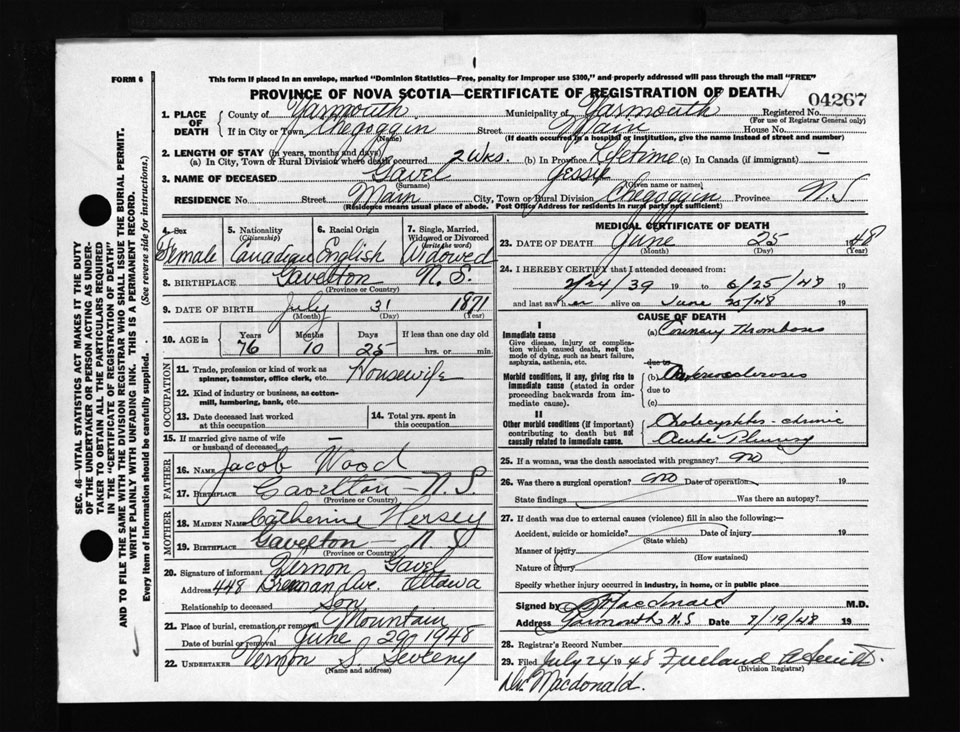 FORM 6
This form if placed in an envelope, marked "Dominion Statistics—Free, penalty for improper use $300," and properly addressed will pass through the mail "FREE"
PROVINCE OF NOVA SCOTIA—CERTIFICATE OF REGISTRATION OF DEATH
04267
1. PLACE OF DEATH County of Yarmouth Municipality of Yarmouth Registered No.
(For use of Registrar General only)
If in City or Town Chegoggin Street Main House No.
(Name) (If death occurred in a hospital or institution, give the name instead of street and number)
2. LENGTH OF STAY (in years, months and days)
(a) In City, Town or Rural Division where death occurred 2 wks. (b) In Province Lifetime (c) In Canada (if immigrant) —
3. NAME OF DECEASED Gavel Jessie
(Surname) (Given name or names)
RESIDENCE No. Street Main City, Town or Rural Division Chegoggin Province N.S
(Residence means usual place of abode. Post Office Address for residents in rural parts not sufficient)
4. Sex Female
5. Nationality (Citizenship) Canadian
6. Racial Origin English
7. Single, Married, Widowed or Divorced (write the word) Widowed
8. BIRTHPLACE Gavelton N.S.
(Province or Country)
9. DATE OF BIRTH July 31 1871
(Month) (Day) (Year)
10. AGE in Years 76 Months 10 Days 25 If less than one day old hrs. or min.
OCCUPATION
11. Trade, profession or kind of work as spinner, teamster, office clerk, etc. Housewife
12. Kind of industry or business, as cotton-mill, lumbering, bank, etc.
13. Date deceased last worked at this occupation
14. Total yrs. spent in this occupation
15. If married give name of wife or husband of deceased —
FATHER
16. NAME Jacob Wood
17. BIRTHPLACE Gavelton — N.S.
(Province or Country)
MOTHER
18. MAIDEN NAME Catherine Hersey
19. BIRTHPLACE Gavelton — N.S
(Province or Country)
20. Signature of informant Vernon Gavel
Address 448 Brennan Ave. Ottawa
Relationship to deceased Son
21. Place of burial, cremation or removal Mountain
Date of burial or removal June 29 1948
22. UNDERTAKER Vernon S. Sweeny
(Name and address)
MEDICAL CERTIFICATE OF DEATH
23. DATE OF DEATH June 25 1948
(Month) (Day) (Year)
24. I HEREBY CERTIFY that I attended deceased from
2/24/39 19 to 6/25/48 19
and last saw her alive on June 25/48 19
CAUSE OF DEATH
I
Immediate cause
Give disease, injury or complication which caused death, not the mode of dying, such as heart failure, asphyxia, asthenia, etc.
(a) Coronary Thrombosis
due to
Morbid conditions, if any, giving rise to immediate cause (stated in order proceeding backwards from immediate cause).
(b) Arteriosclerosis
due to
(c)
II
Other morbid conditions (if important) contributing to death but not causally related to immediate cause.
Cholecystitis - chronic
Acute Pleurisy
25. If a woman, was the death associated with pregnancy? no
26. Was there a surgical operation? no Date of operation 19
State findings Was there an autopsy?
27. If death was due to external causes (violence) fill in also the following:—
Accident, suicide or homicide? Date of injury 19
(State which)
Manner of injury
(How sustained)
Nature of injury
Specify whether injury occurred in industry, in home, or in public place
Signed by Macdonald M.D.
Address Yarmouth N.S Date 7/19/48 19
28. Registrar's Record Number
29. Filed July 24 1948 Freeland
(Division Registrar)
Dr. Macdonald.
SEC. 46—VITAL STATISTICS ACT MAKES IT THE DUTY
OF THE UNDERTAKER OR PERSON ACTING AS UNDER-
TAKER TO OBTAIN ALL THE PARTICULARS REQUIRED
IN THE "CERTIFICATE OF REGISTRATION OF DEATH"
AND TO FILE THE SAME WITH THE DIVISION REGISTRAR WHO SHALL ISSUE THE BURIAL PERMIT.
WRITE PLAINLY WITH UNFADING INK. THIS IS A PERMANENT RECORD.
Every item of information should be carefully supplied. (See reverse side for instructions.)